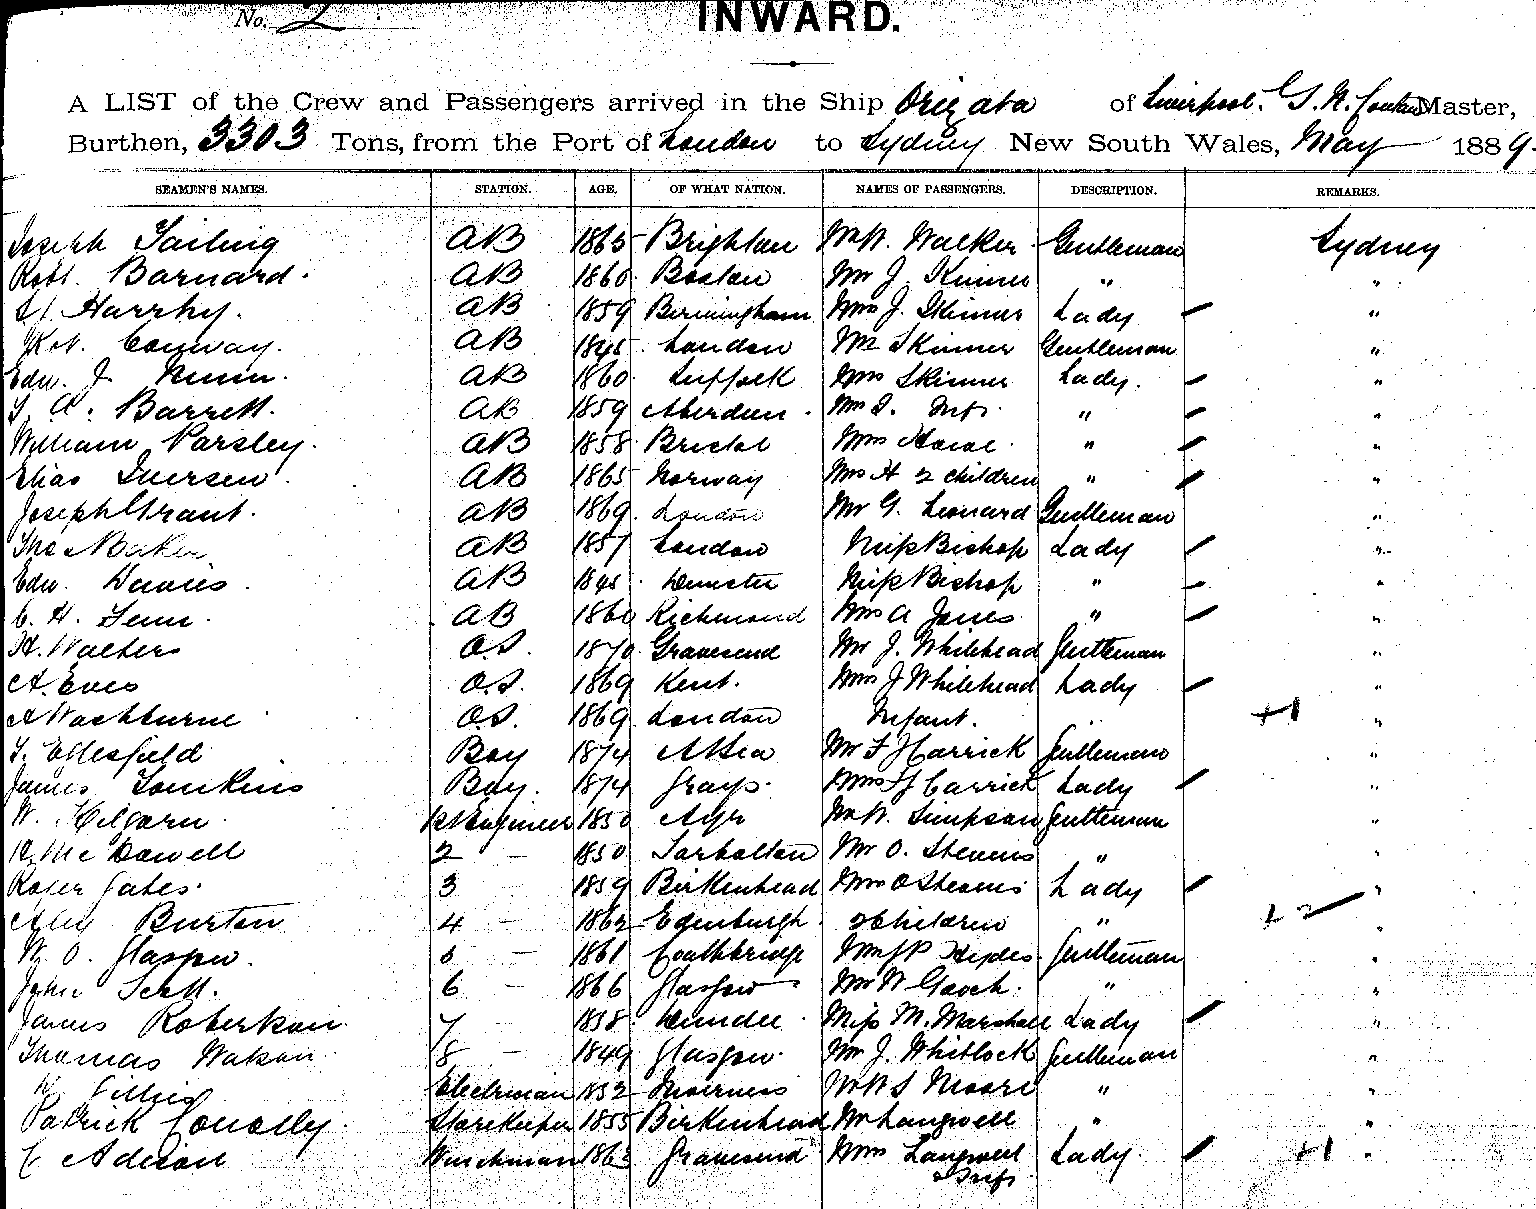 No. 2
INWARD.
A LIST of the Crew and Passengers arrived in the Ship Orizaba of Liverpool. G. N. Master,
Burthen, 3303 Tons, from the Port of London to Sydney New South Wales, May 1889.
SEAMEN'S NAMES. STATION. AGE. OF WHAT NATION. NAMES OF PASSENGERS. DESCRIPTION. REMARKS.
Joseph Sailing AB 1865 Brighton Mr W. Walker Gentleman Sydney
Robt. Barnard. AB 1860 Boston Mr J. Skinner " "
H. Harrhy. AB 1859 Birmingham Mrs J. Skinner Lady "
Conway. AB 1845 London Mr Skinner Gentleman "
Edw. J. Nunn. AB 1860 Suffock Mrs Skinner Lady. "
A. Barrett. AB 1859 Aberdeen. " "
William Parsley. AB 1858 Bristol Mrs " "
Elias Iversen AB 1865 Norway Mrs H 2 children " "
Joseph Grant. AB 1869 London Mr G. Leonard Gentleman "
Thos Baker AB 1857 London Miss Bishop Lady "
Edw. Davies. AB 1845 Miss Bishop " "
C. H. Fenn. AB 1860 Richmond Mrs A Jones " "
H. Walters O.S. 1870 Gravesend Mr J. Whitehead Gentleman "
A. Eves O.S. 1869 Kent. Mrs J Whitehead Lady "
A Washburne O.S. 1869 London Infant. +1 "
Ettesfield Boy 1874 At Sea Mr F Carrick Gentleman "
James Tomkins Boy. 1874 Grays. Mrs F Carrick Lady "
W. Kilgarn. 1st Engineer 1850 Ayr Mr W. Simpson Gentleman "
McDowell 2 - 1850 Tarbolton Mr O. Stevens " "
Roger Gates. 3 - 1859 Birkenhead Mrs O Stevens Lady "
Alex Burton 4 - 1862 Edenburgh. 2 Children " +2 "
W. O. Glasgow. 5 - 1861 Coathbridge Hydes. Gentleman "
John Scott. 6 - 1866 Glasgow Mr W Gooch. " "
James Robertson. 7 1858 Dundee. Miss M. Marshall Lady "
Thomas Watson 8 - 1849 Glasgow. Mr J. Whitlock Gentleman "
Gillies Electrician 1852 Inverness Mr W S Moore " "
Patrick Conolly. Storekeeper 1855 Birkenhead Mr Langwell " "
C Adison Winchman 1863 Gravesend Mrs Langwell Lady. +1 "
& Inft